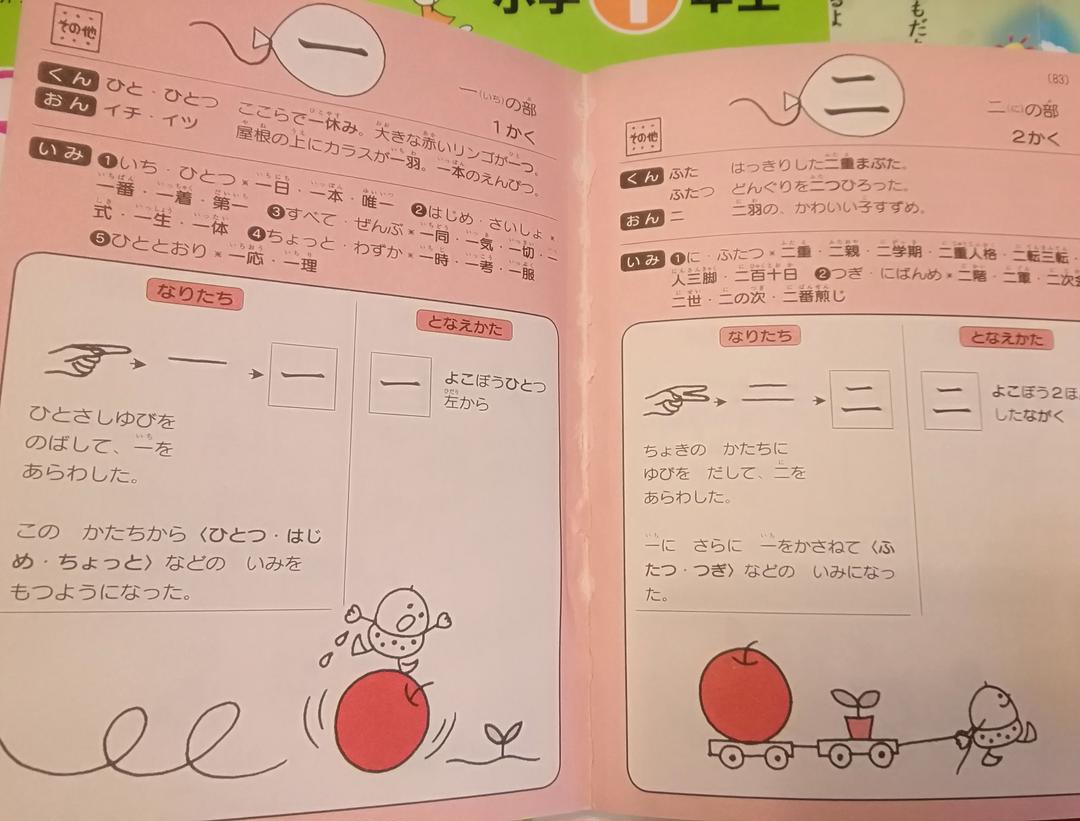 小学1年生
もだ
るよ
その他
一
一(いち)の部
1かく
くん ひと・ひとつ
おん イチ・イツ
ここらで一休み。大きな赤いリンゴが一つ。
屋根の上にカラスが一羽。一本のえんぴつ。
いみ ❶いち・ひとつ*一日・一本・唯一
一番・一着・第一 ❷はじめ・さいしょ*
❸すべて・ぜんぶ*一同・一気・一切・一
式・一生・一体 ❹ちょっと・わずか*一時・一考・一服
❺ひととおり*一応・一理
なりたち
一
ひとさしゆびを
のばして、一を
あらわした。
この かたちから〈ひとつ・はじ
め・ちょっと〉などの いみを
もつようになった。
となえかた
一
よこぼうひとつ
左から
(83)
その他
二
二(に)の部
2かく
くん ふた
ふたつ
おん ニ
はっきりした二重まぶた。
どんぐりを二つひろった。
二羽の、かわいい子すずめ。
いみ ❶に・ふたつ*二重・二親・二学期・二重人格・二転三転・
人三脚・二百十日 ❷つぎ・にばんめ*二階・二軍・二次
二世・二の次・二番煎じ
なりたち
二
ちょきの かたちに
ゆびを だして、二を
あらわした。
一に さらに 一をかさねて〈ふ
たつ・つぎ〉などの いみになっ
た。
となえかた
二
よこぼう2ほ
したながく